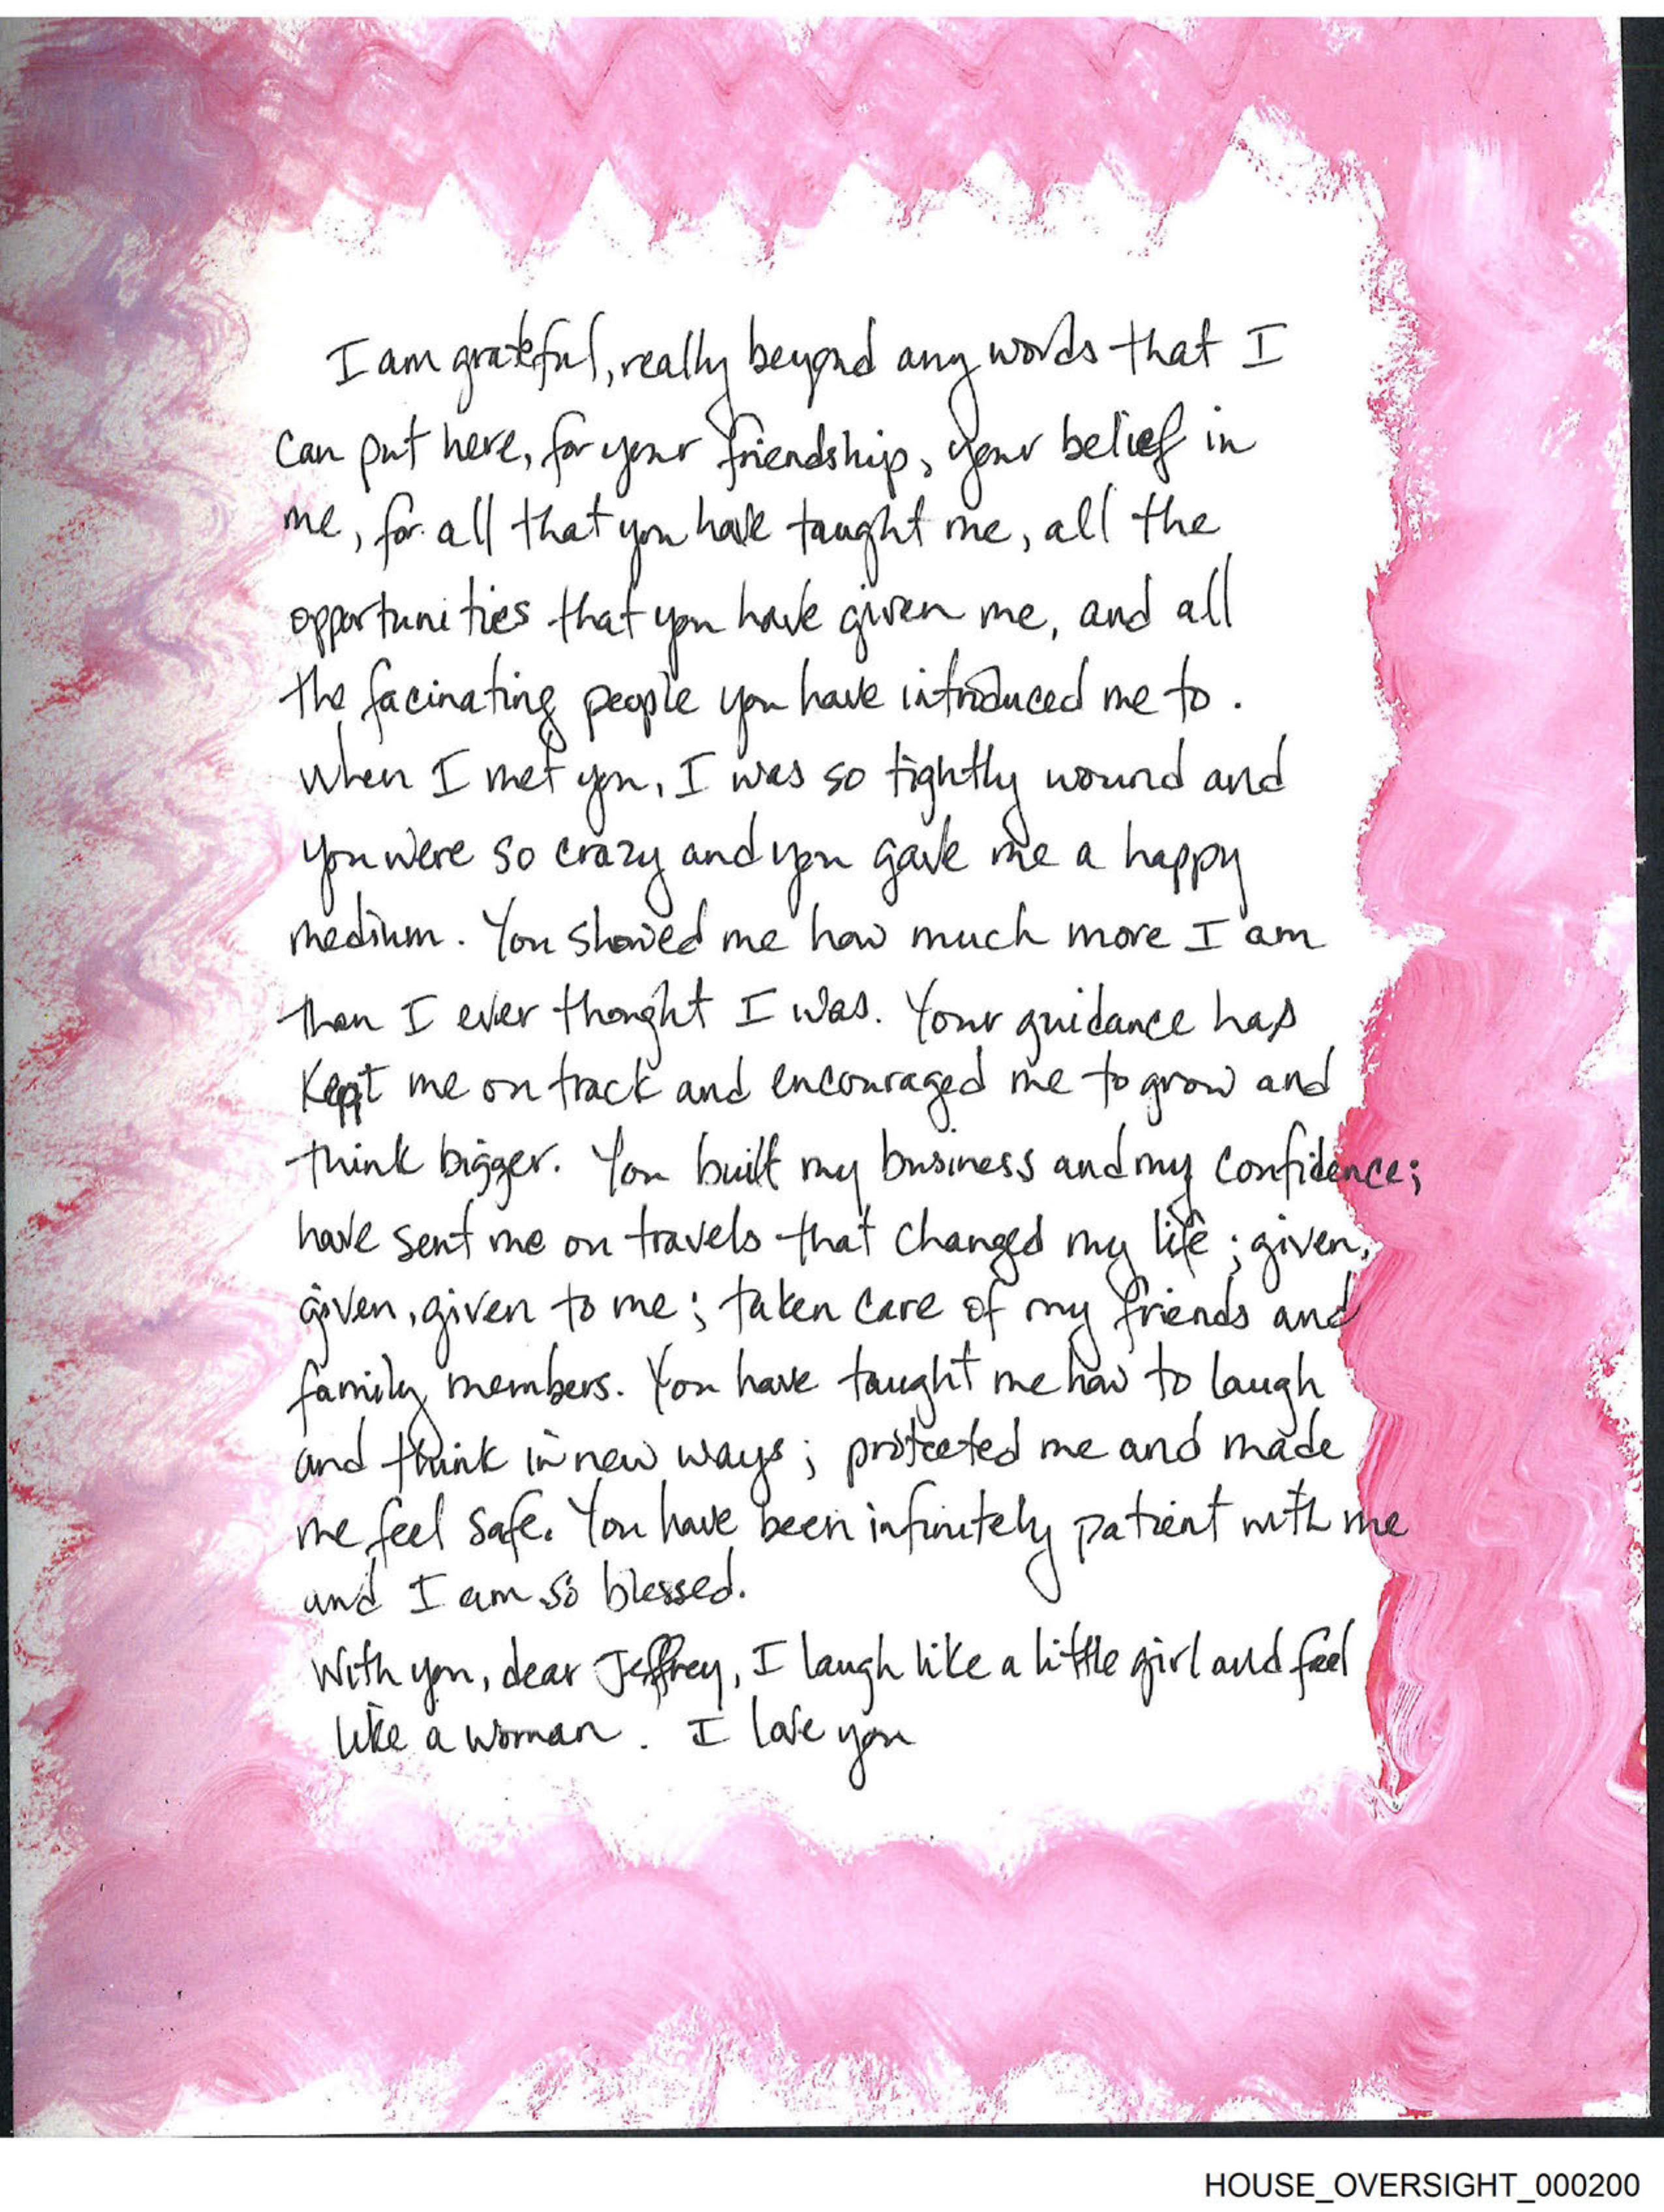 I am grateful, really beyond any words that I
can put here, for your friendship, your belief in
me, for all that you have taught me, all the
opportunities that you have given me, and all
the facinating people you have introduced me to.
When I met you, I was so tightly wound and
you were so crazy and you gave me a happy
medium. You showed me how much more I am
than I ever thought I was. Your guidance has
kept me on track and encouraged me to grow and
think bigger. You built my business and my confidence;
have sent me on travels that changed my life; given,
given, given to me; taken care of my friends and
family members. You have taught me how to laugh
and think in new ways; protected me and made
me feel safe. You have been infinitely patient with me
and I am so blessed.
With you, dear Jeffrey, I laugh like a little girl and feel
like a woman. I love you
HOUSE_OVERSIGHT_000200